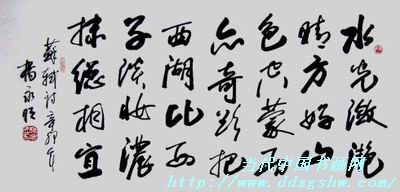 水光瀲灧
晴方好山
色空蒙雨
亦奇欲把
西湖比西
子淡妝濃
抹總相宜
蘇軾詩辛卯年
当代中国书画网
http://www.ddzgshw.com/